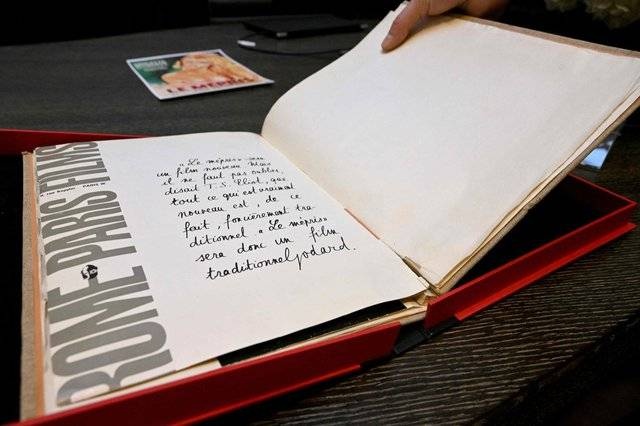 LE MÉPRIS
ROME PARIS FILMS
PARIS 8e
« Le mépris » sera
un film nouveau. Mais
il ne faut pas oublier,
disait T. S. Eliot, que
tout ce qui est vraiment
nouveau est, de ce
fait, foncièrement tra-
ditionnel. « Le mépris »
sera donc un film
traditionnel Godard.